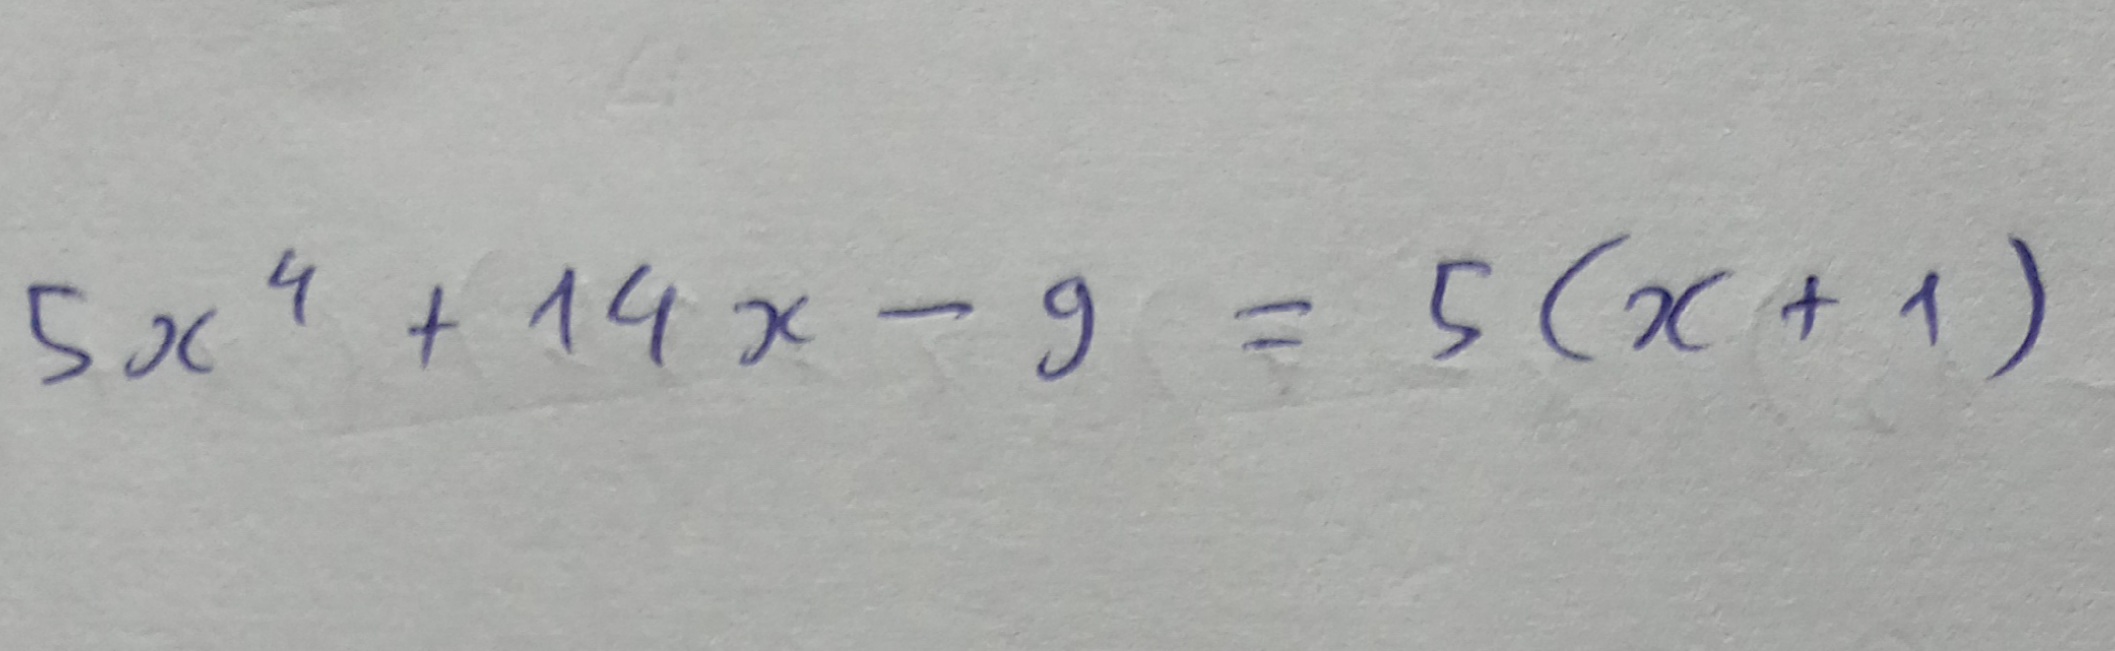 5x⁴ + 14x - 9 = 5(x + 1)